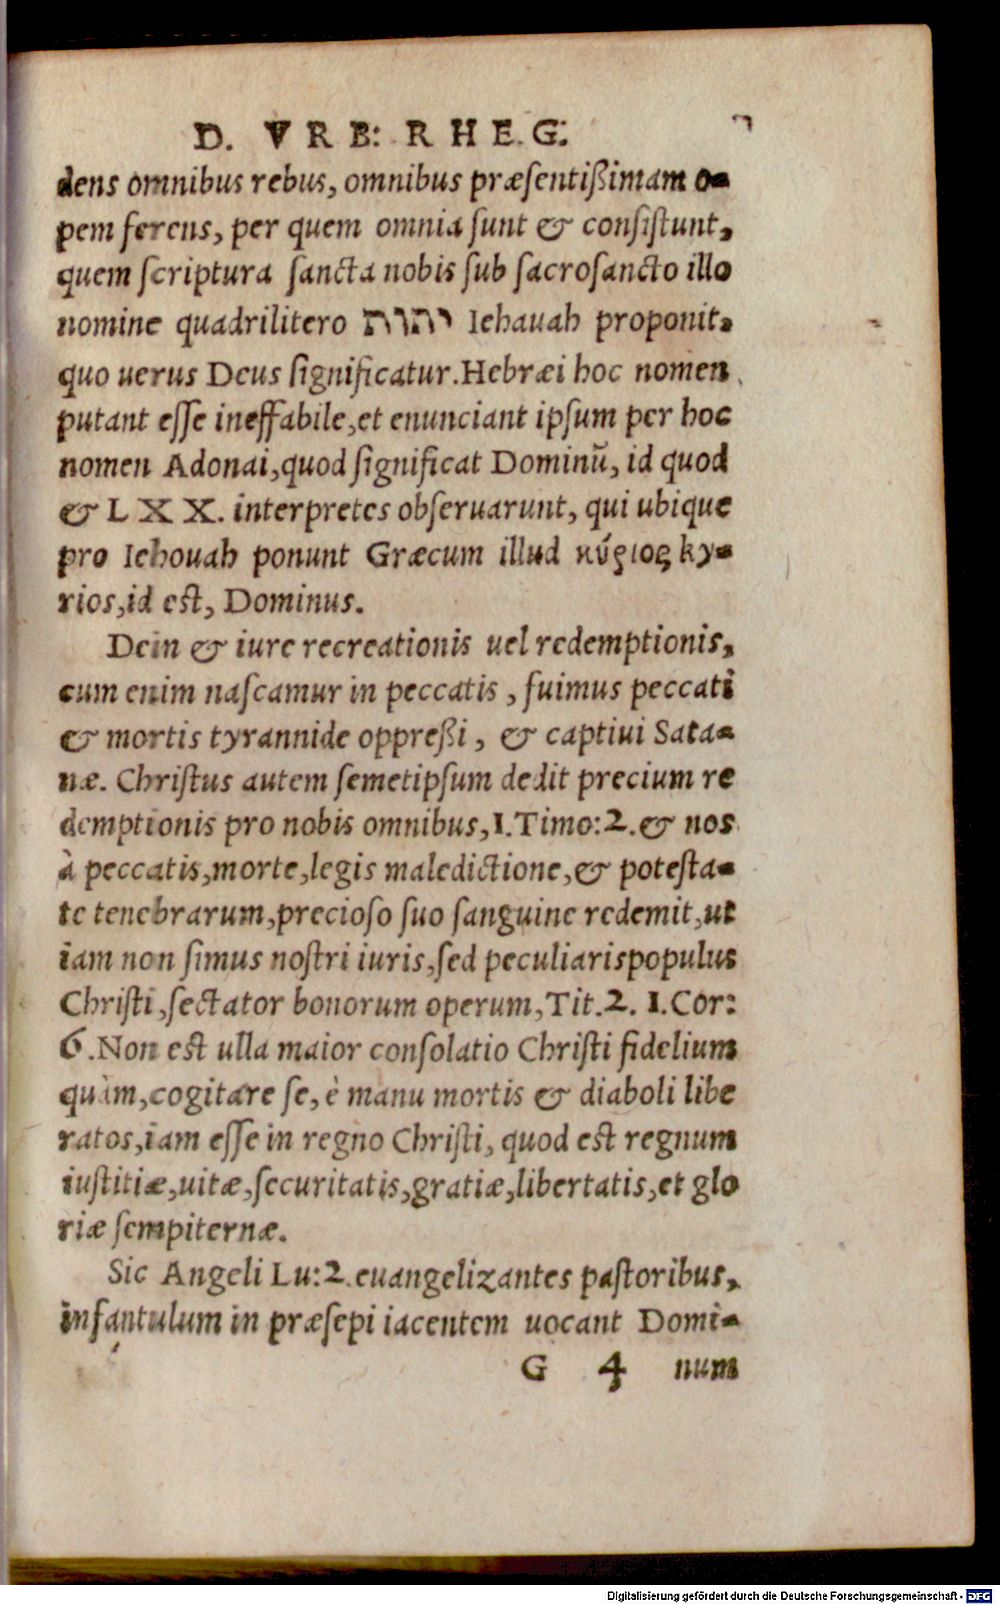 D. VRB: RHEG:
dens omnibus rebus, omnibus præsentißimam o-
pem ferens, per quem omnia sunt & consistunt,
quem scriptura sancta nobis sub sacrosancto illo
nomine quadrilitero יהוה Iehauah proponit,
quo uerus Deus significatur. Hebræi hoc nomen
putant esse ineffabile, et enunciant ipsum per hoc
nomen Adonai, quod significat Dominũ, id quod
& LXX. interpretes obseruarunt, qui ubique
pro Iehouah ponunt Græcum illud κύριος ky-
rios, id est, Dominus.
Dein & iure recreationis uel redemptionis,
cum enim nascamur in peccatis, fuimus peccati
& mortis tyrannide oppreßi, & captiui Sata-
næ. Christus autem semetipsum dedit precium re
demptionis pro nobis omnibus, 1. Timo: 2. & nos
à peccatis, morte, legis maledictione, & potesta-
te tenebrarum, precioso suo sanguine redemit, ut
iam non simus nostri iuris, sed peculiaris populus
Christi, sectator bonorum operum, Tit. 2. 1. Cor:
6. Non est ulla maior consolatio Christi fidelium
quàm, cogitare se, è manu mortis & diaboli libe
ratos, iam esse in regno Christi, quod est regnum
iustitiæ, uitæ, securitatis, gratiæ, libertatis, et glo
riæ sempiternæ.
Sic Angeli Lu: 2. euangelizantes pastoribus,
infantulum in præsepi iacentem uocant Domi-
G 4 num
Digitalisierung gefördert durch die Deutsche Forschungsgemeinschaft - DFG